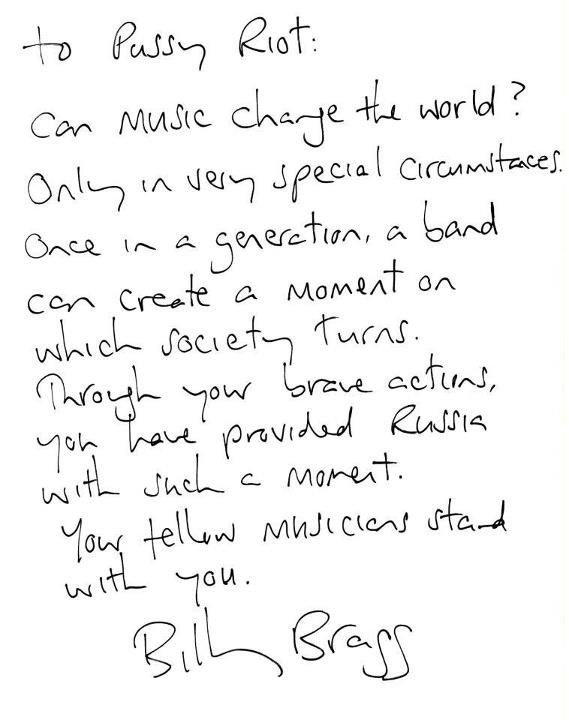 to Pussy Riot:
Can music change the world?
Only in very special circumstances.
Once in a generation, a band
can create a moment on
which society turns.
Through your brave actions,
you have provided Russia
with such a moment.
Your fellow musicians stand
with you.
Billy Bragg